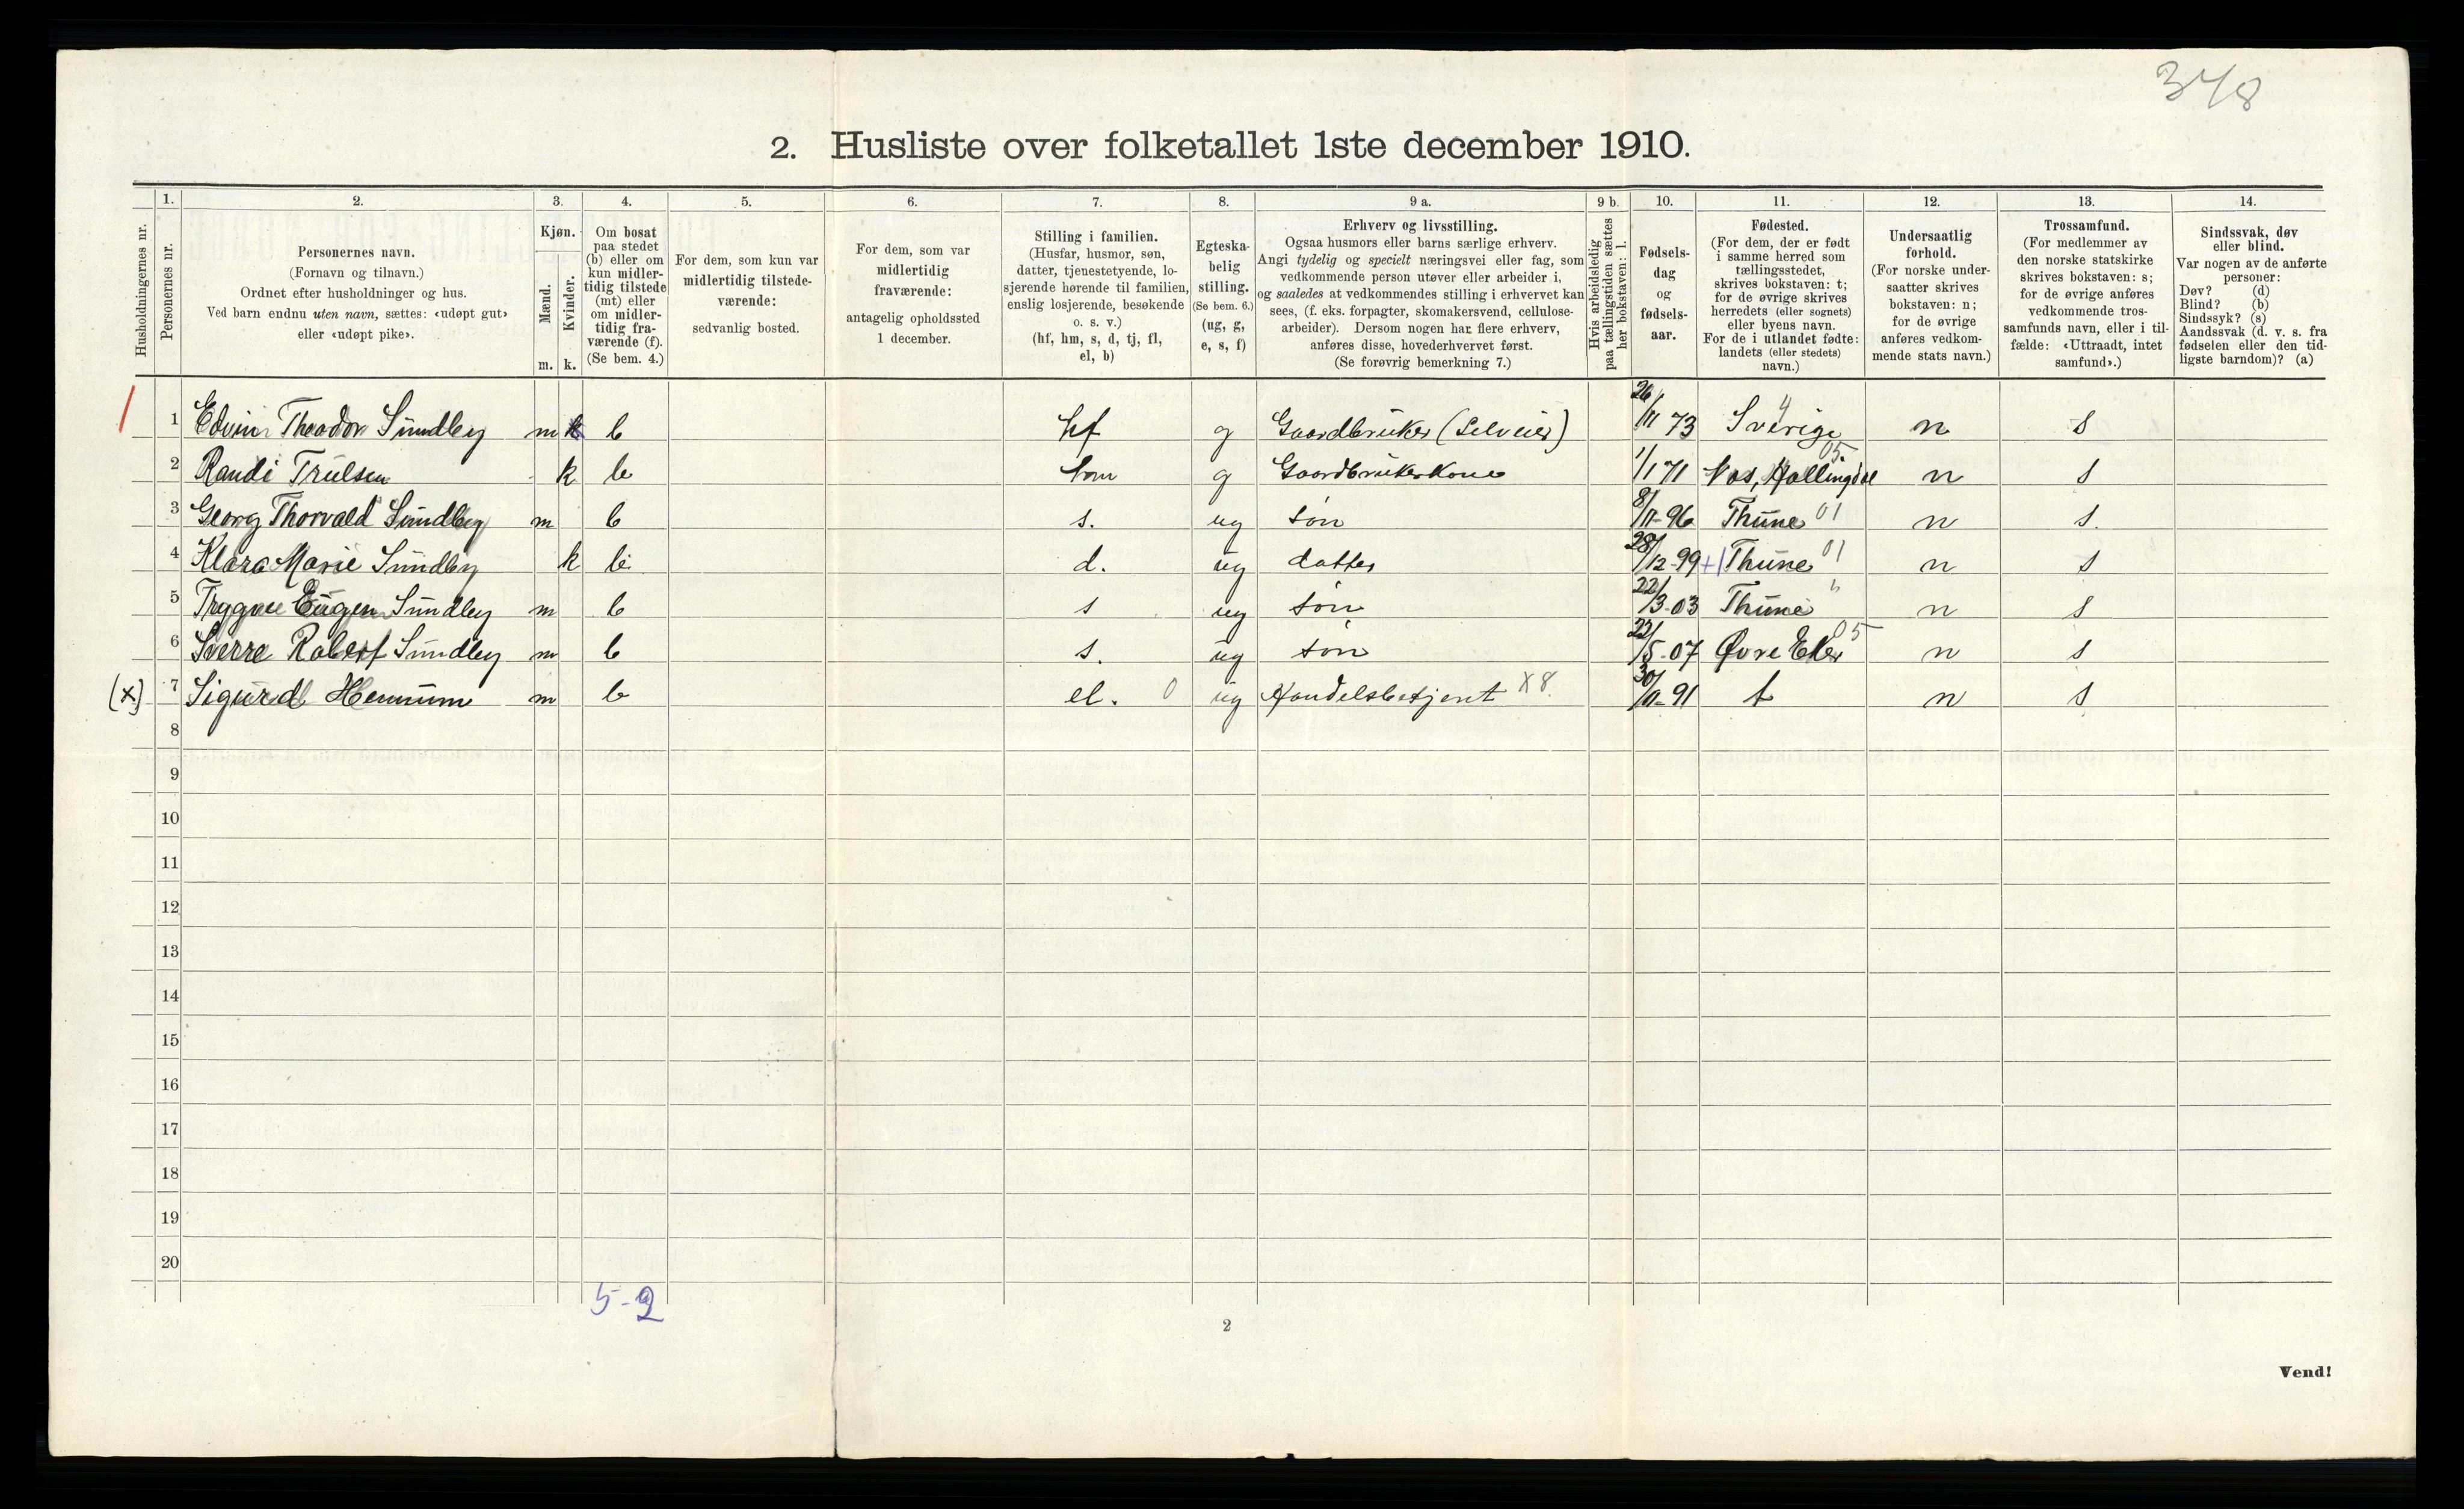 348
2. Husliste over folketallet 1ste december 1910.
Husholdningernes nr.
1.
Personernes nr.
2.
Personernes navn.
(Fornavn og tilnavn.)
Ordnet efter husholdninger og hus.
Ved barn endnu uten navn, sættes: «udøpt gut»
eller «udøpt pike».
3.
Kjøn.
Mænd.
Kvinder.
m. k.
4.
Om bosat
paa stedet
(b) eller om
kun midler-
tidig tilstede
(mt) eller
om midler-
tidig fra-
værende (f).
(Se bem. 4.)
5.
For dem, som kun var
midlertidig tilstede-
værende:
sedvanlig bosted.
6.
For dem, som var
midlertidig
fraværende:
antagelig opholdssted
1 december.
7.
Stilling i familien.
(Husfar, husmor, søn,
datter, tjenestetyende, lo-
sjerende hørende til familien,
enslig losjerende, besøkende
o. s. v.)
(hf, hm, s, d, tj, fl,
el, b)
8.
Egteska-
belig
stilling.
(Se bem. 6.)
(ug, g,
e, s, f)
9 a.
Erhverv og livsstilling.
Ogsaa husmors eller barns særlige erhverv.
Angi tydelig og specielt næringsvei eller fag, som
vedkommende person utøver eller arbeider i,
og saaledes at vedkommendes stilling i erhvervet kan
sees, (f. eks. forpagter, skomakersvend, cellulose-
arbeider). Dersom nogen har flere erhverv,
anføres disse, hovederhvervet først.
(Se forøvrig bemerkning 7.)
9 b.
Hvis arbeidsledig
paa tællingstiden sættes
her bokstaven: l.
10.
Fødsels-
dag
og
fødsels-
aar.
11.
Fødested.
(For dem, der er født
i samme herred som
tællingsstedet,
skrives bokstaven: t;
for de øvrige skrives
herredets (eller sognets)
eller byens navn.
For de i utlandet fødte:
landets (eller stedets)
navn.)
12.
Undersaatlig
forhold.
(For norske under-
saatter skrives
bokstaven: n;
for de øvrige
anføres vedkom-
mende stats navn.)
13.
Trossamfund.
(For medlemmer av
den norske statskirke
skrives bokstaven: s;
for de øvrige anføres
vedkommende tros-
samfunds navn, eller i til-
fælde: «Uttraadt, intet
samfund».)
14.
Sindssvak, døv
eller blind.
Var nogen av de anførte
personer:
Døv? (d)
Blind? (b)
Sindssyk? (s)
Aandssvak (d. v. s. fra
fødselen eller den tid-
ligste barndom)? (a)
1 Edvin Theodor Sundby m k b hf g Gaardbruker (Selveier) 26/11 73 Sverige 4 n s
2 Randi Trulsen k b hm g Gaardbrukerkone 1/1 71 Nos, Hallingdal 05 n s
3 Georg Thorvald Sundby m b s. ug søn 8/11-96 Thune 01 n s.
4 Klara Marie Sundby k b d. ug datter 28/12-99 + Thune 01 n s
5 Trygve Eugen Sundby m b s ug søn 22/3-03 Thune " n s
6 Sverre Robert Sundby m b s. ug søn 22/5-07 Øvre Eker 05 n s
(x) 7 Sigurd Hennum m b el. 0 ug Handelsbetjent X8. 30/11-91 t n s
8
9
10
11
12
13
14
15
16
17
18
19
20
5-2
2
Vend!